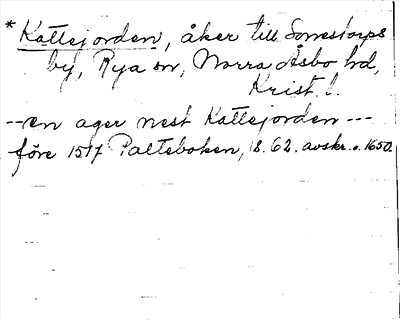 * Kattejorden, åker till Sonnestorps
by, Rya sn, Norra Åsbo hd,
Krist. l.
--en ager nest Kattejorden---
före 1517 Palteboken, s. 62. avskr. o. 1650